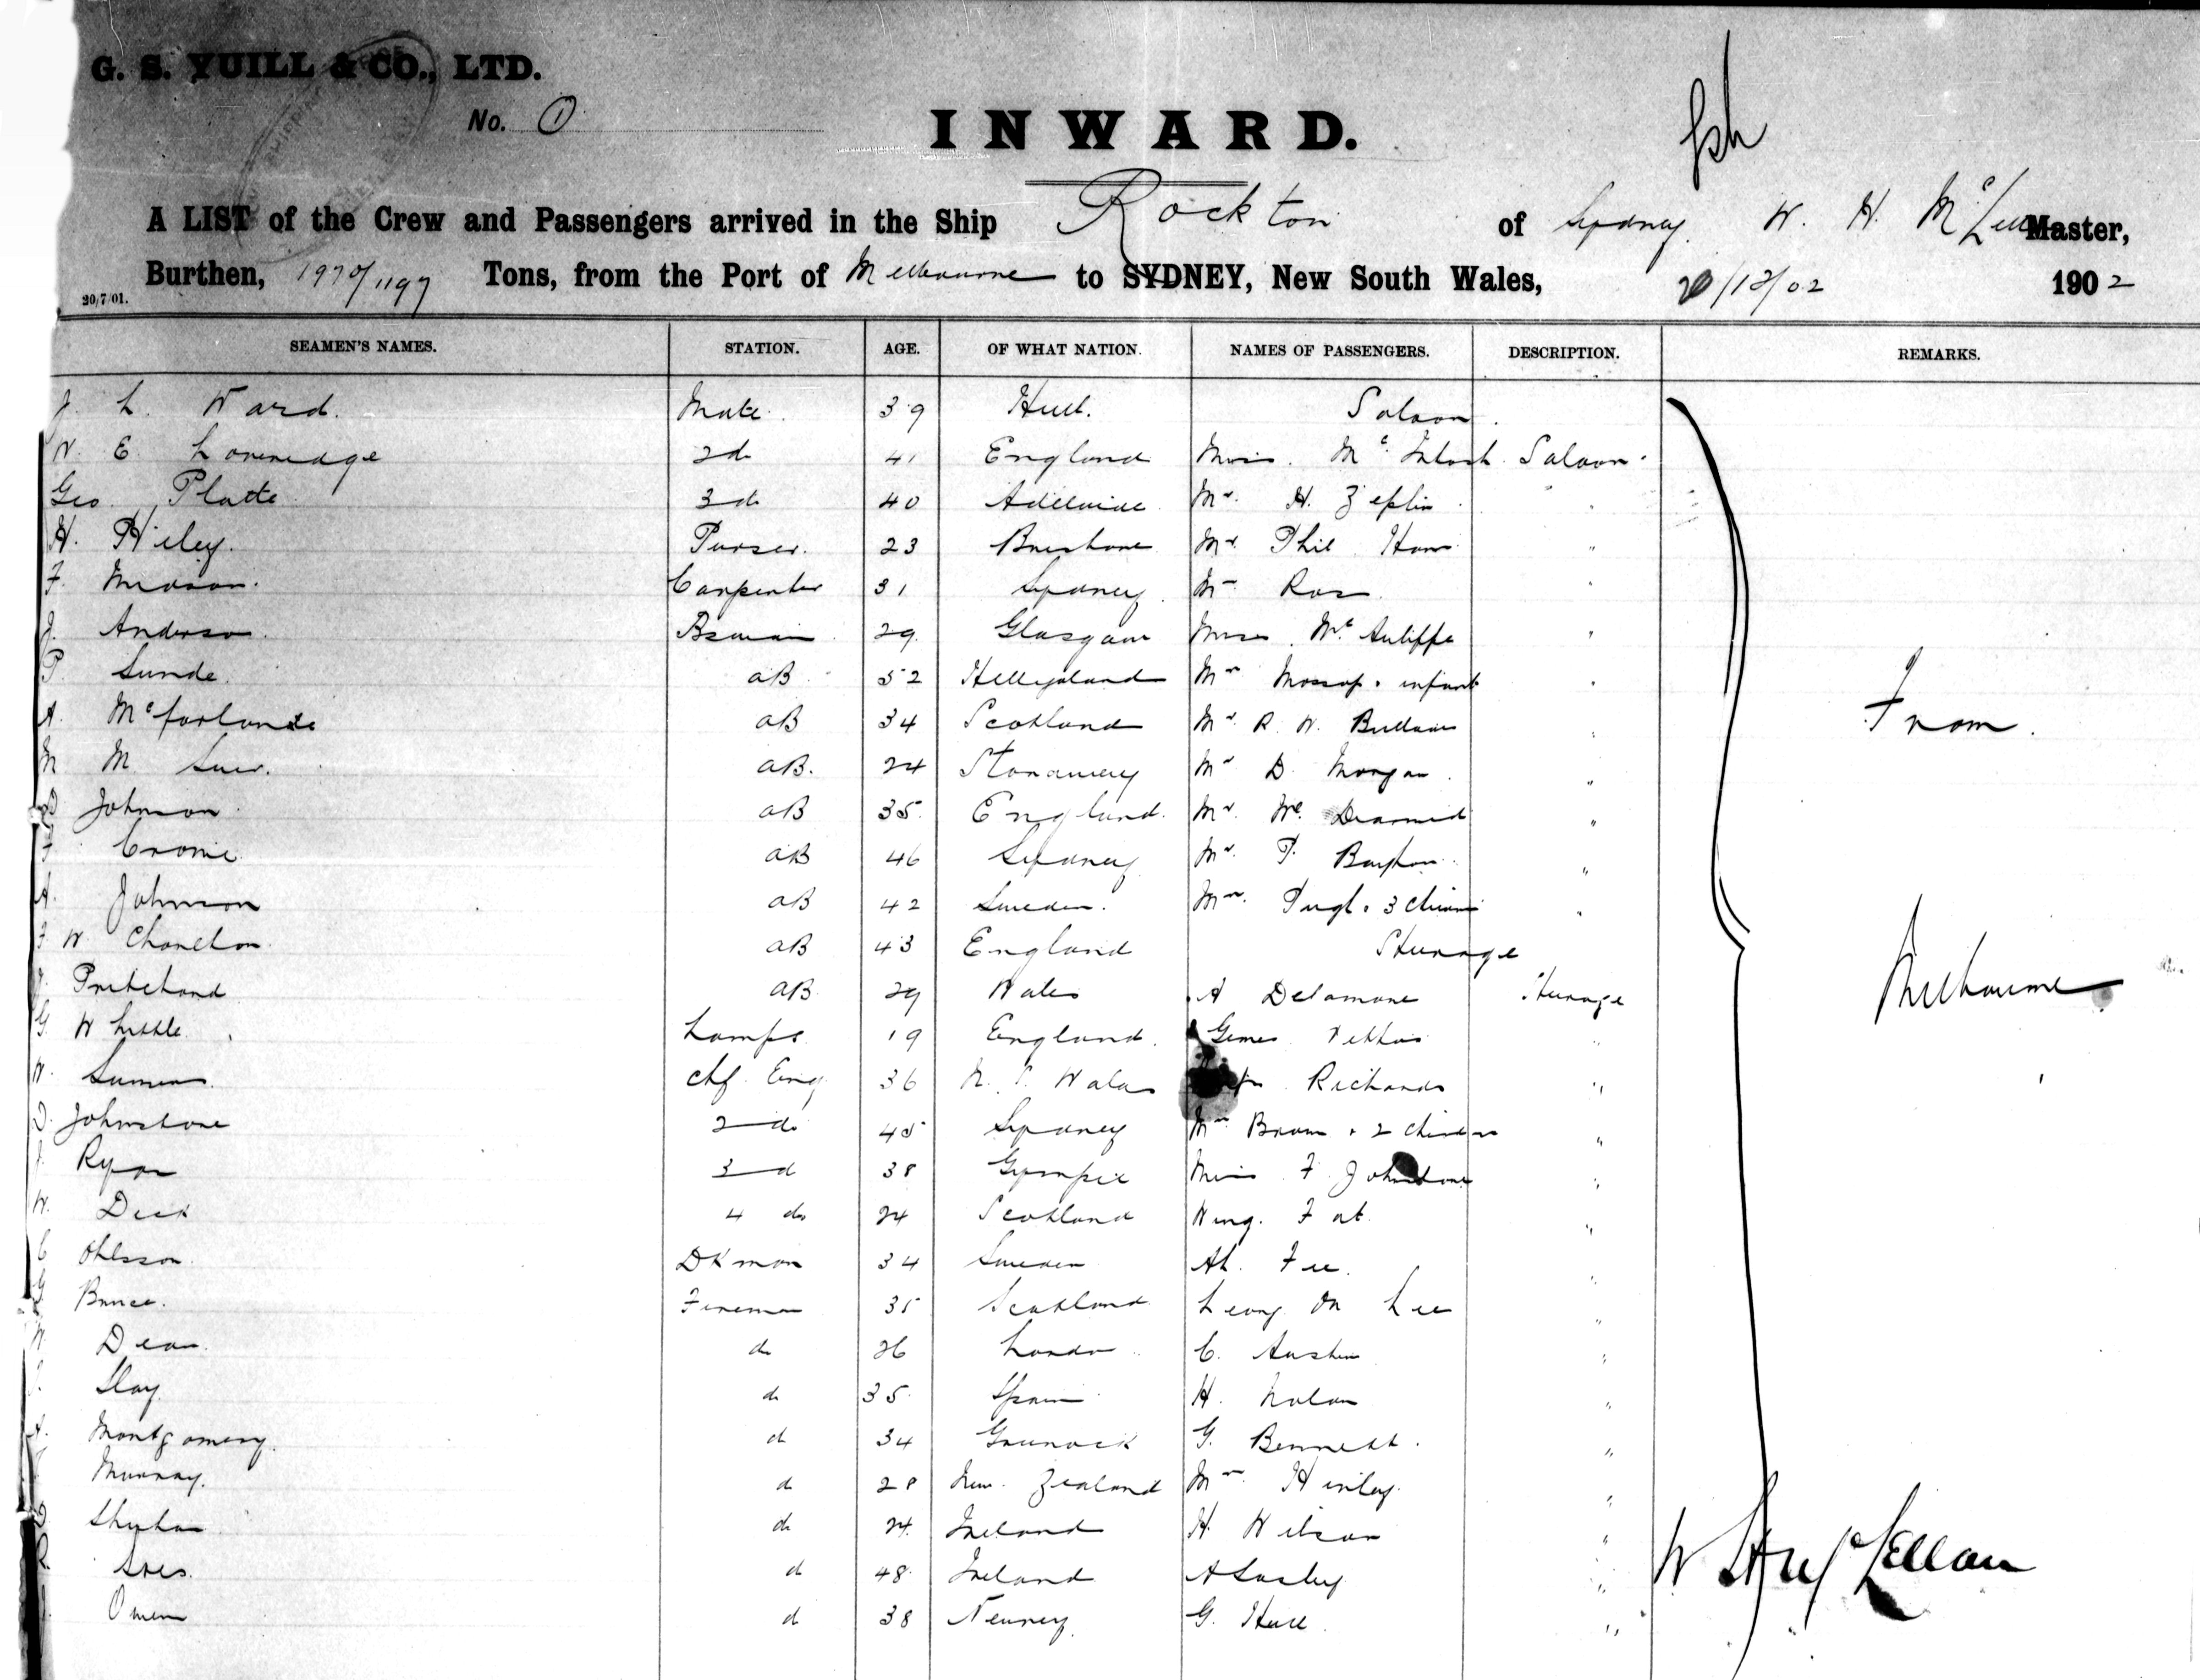 G. S. YUILL & CO., LTD.
No. 1
INWARD.
A LIST of the Crew and Passengers arrived in the Ship Rockton of Sydney W. H. Master,
Burthen, 1970/1197 Tons, from the Port of Melbourne to SYDNEY, New South Wales, /12/02 1902
20/7/01.
SEAMEN'S NAMES. STATION. AGE. OF WHAT NATION. NAMES OF PASSENGERS. DESCRIPTION. REMARKS.
J. L. Ward. Mate. 39 Hull. Saloon.
E 2d 41 England McIntosh Saloon
Geo Platte 3d 40 Adelaide Mr. H. Zeplin "
H. Hiley. Purser. 23 Brisbane Mr Phil "
F. Carpenter 31 Sydney "
J. Anderson 29 Glasgow McAuliffe "
P. Sunde. aB 52 Heligoland Mossop & infant "
A. McFarlande aB 34 Scotland Mr R. W. " From.
M M aB. 24 Stornaway Mr D. Morgan "
D Johnson aB 35 England. Mr. Mc Diarmid "
F Cronie aB 46 Sydney Mr. P. "
A. Johnson aB 42 Sweden. "
F W Charlton aB 43 England Steerage
J. Pritchard aB 29 Wales A Delamore Steerage Melbourne
G Whittle. Lamps 19 England. "
W. chf Eng 36 N. S. Wales Richards "
D. Johnstone 2 d 45 Sydney Mrs Brown & 2 "
J. Ryan 3 d 38 Gympie Miss F Johnstone "
W. Dick 4 do 24 Scotland Wing. Fat "
C Ohlsson. DKman 34 Sweden Ah. Fee. "
G Bruce. Fireman 35 Scotland Leong On Lee "
W. Dean. d 26 London C. Austin "
Slay d 35 Spain H. Nolan "
A. Montgomery. d 34 Greenock G. Bennett. "
Murray. d 28 New Zealand Henley "
d 24 Ireland H Wilson "
d 48 Ireland "
Owen d 38 Newry G. "